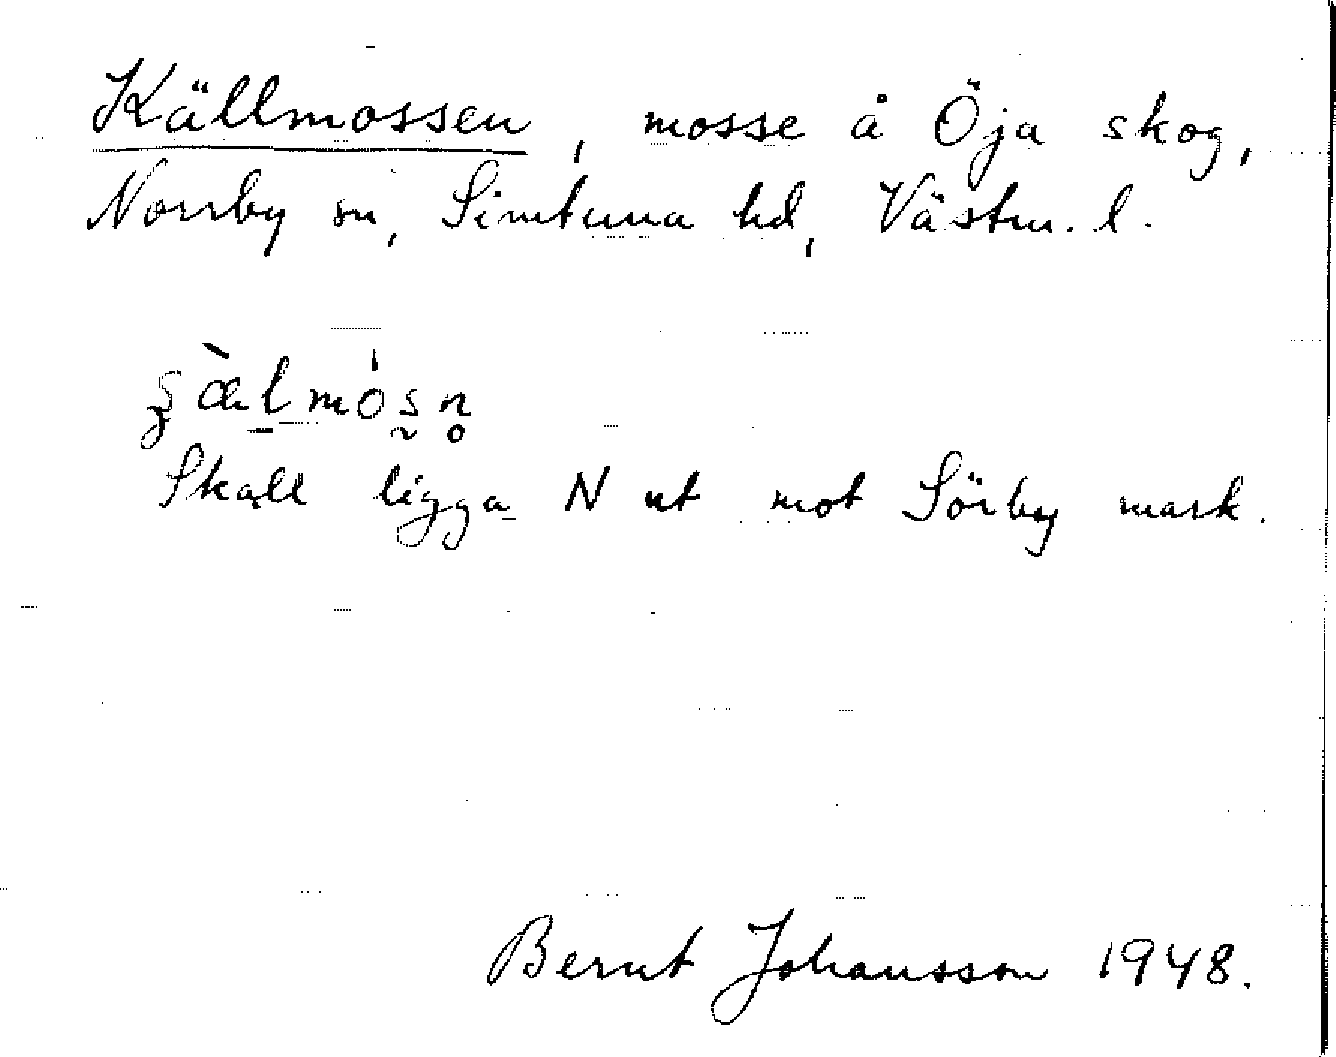 Källmossen, mosse å Öja skog,
Norrby sn, Simtuna hd, Västm. l.
Skall ligga N ut mot Sörby mark.
Bernt Johansson 1948.